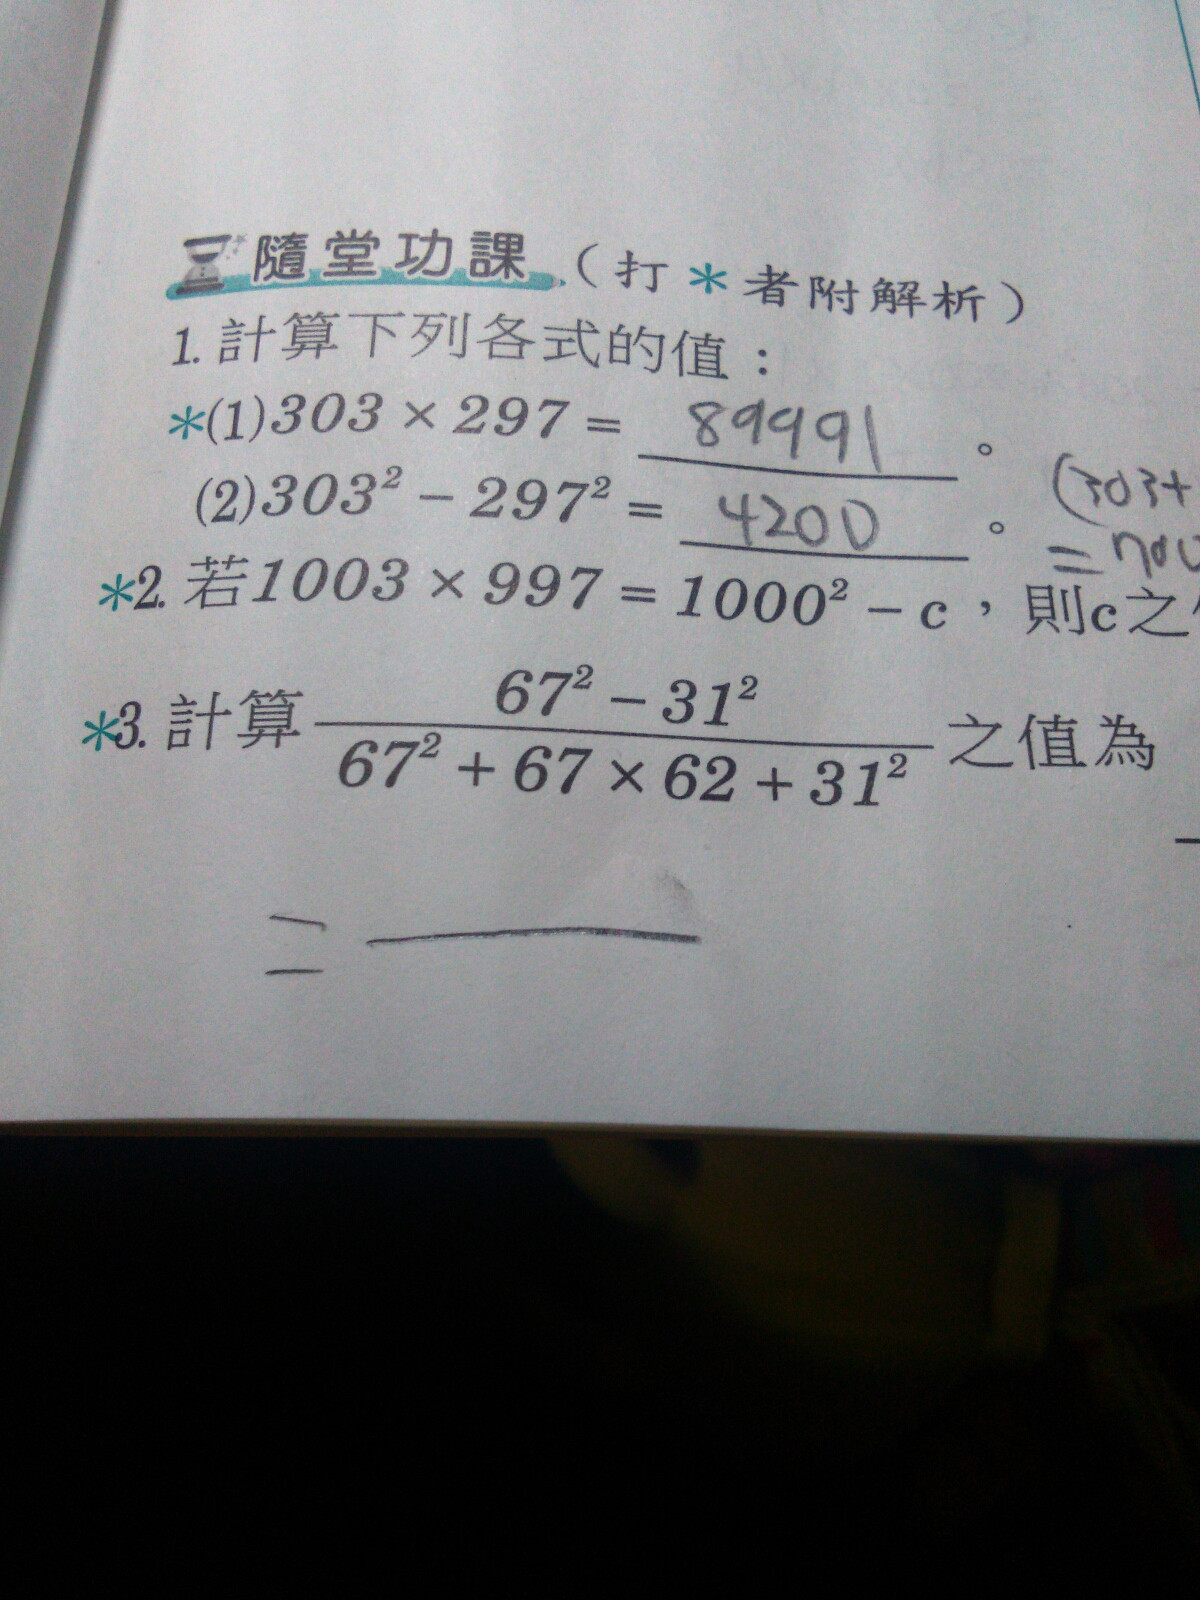 隨堂功課（打＊者附解析）
1. 計算下列各式的值：
＊(1) 303 × 297 = 89991 。
(2) 303² − 297² = 4200 。 (303+
= 700
＊2. 若1003 × 997 = 1000² − c，則c之
＊3. 計算 67² − 31² / 67² + 67 × 62 + 31² 之值為
=